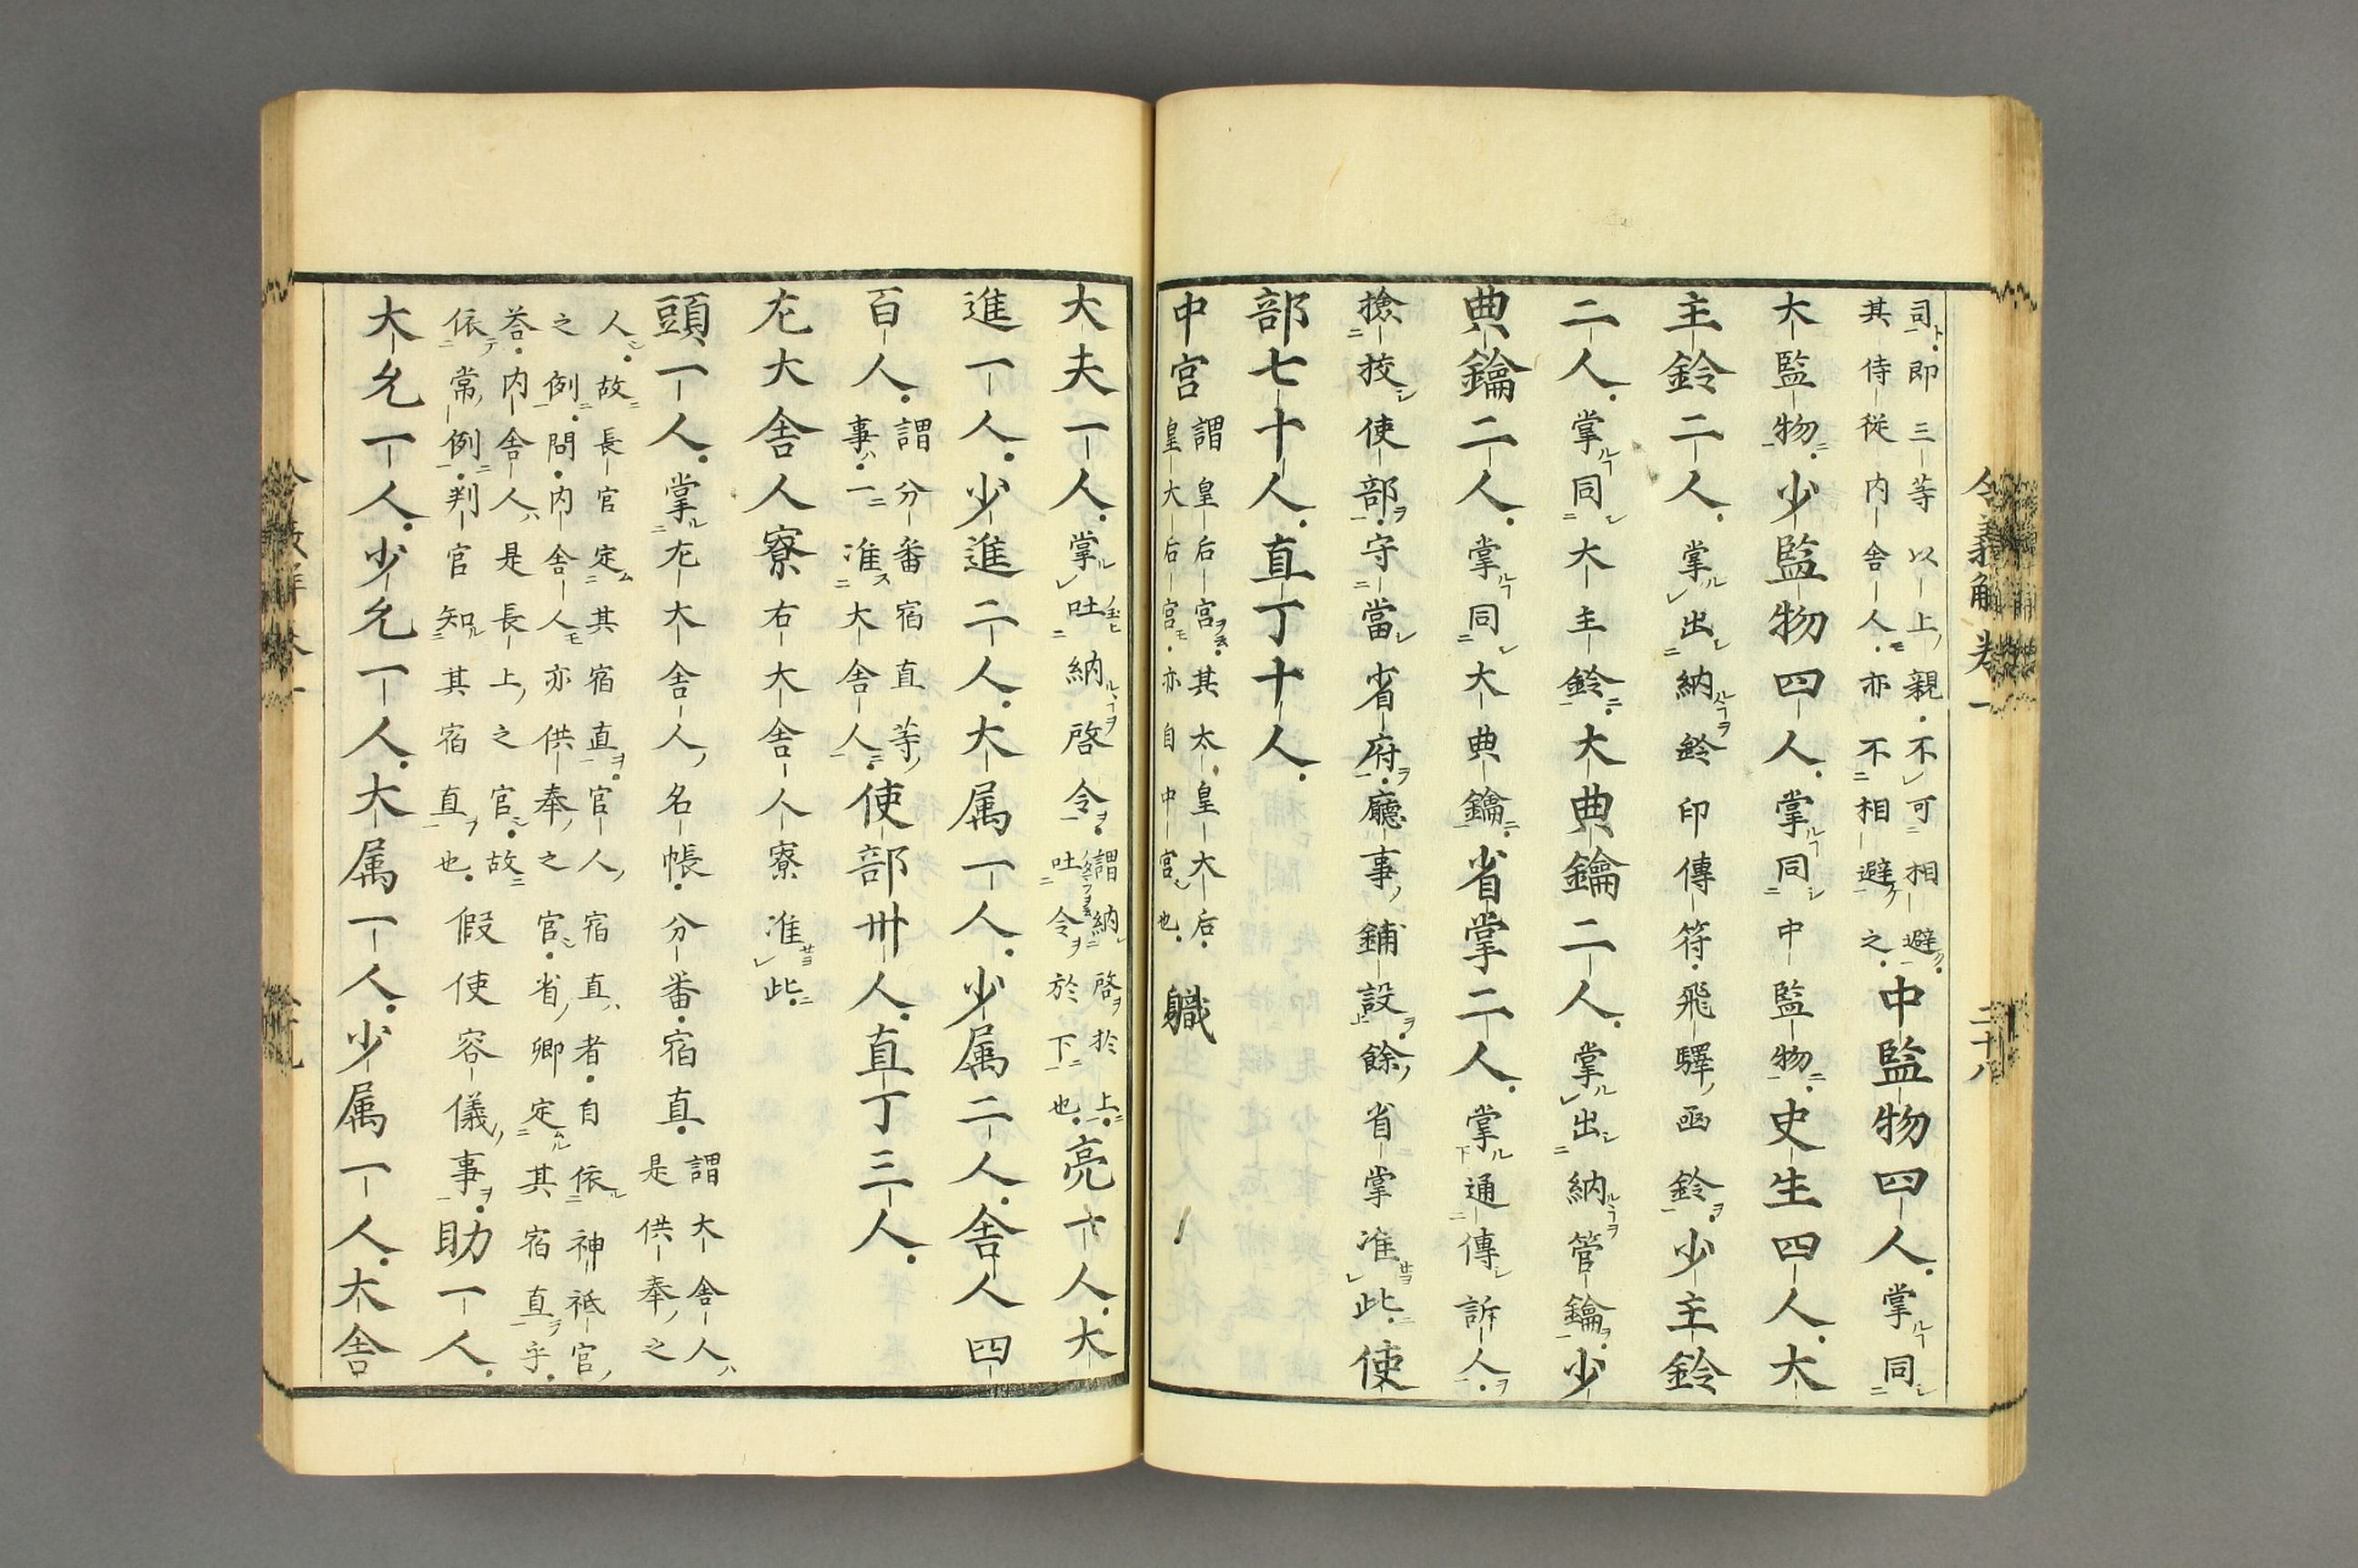 司即三等以上親不可相避
其侍従内舎人亦不相避之
中監物四人掌同
大監物少監物四人掌同中監物史生四人大
主鈴二人掌出納鈴印傳符飛驛凾鈴少主鈴
二人掌同大主鈴大典鑰二人掌出納管鑰少
典鑰二人掌同大典鑰省掌二人掌通傳訴人
撿挍使部守當省府廳事鋪設餘省掌准此使
部七十人直丁十人
中宮
謂皇后宮其太皇大后
皇大后宮亦自中宮也
職
大夫一人掌吐納啓令
謂納啓於上
吐令於下也
亮一人大
進一人少進二人大属一人少属二人舎人四
百人
謂分番宿直等
事一准大舎人
使部卅人直丁三人
左大舎人寮右大舎人寮准此
頭一人掌左大舎人名帳分番宿直
謂大舎人
是供奉之
人故長官定其宿直官人宿直者自依神祇官
之例問内舎人亦供奉之官省卿定其宿直乎
荅内舎人是長上之官故
依常例判官知其宿直也
假使容儀事助一人
大允一人少允一人大属一人少属一人大舎
令義解 卷一 二十八